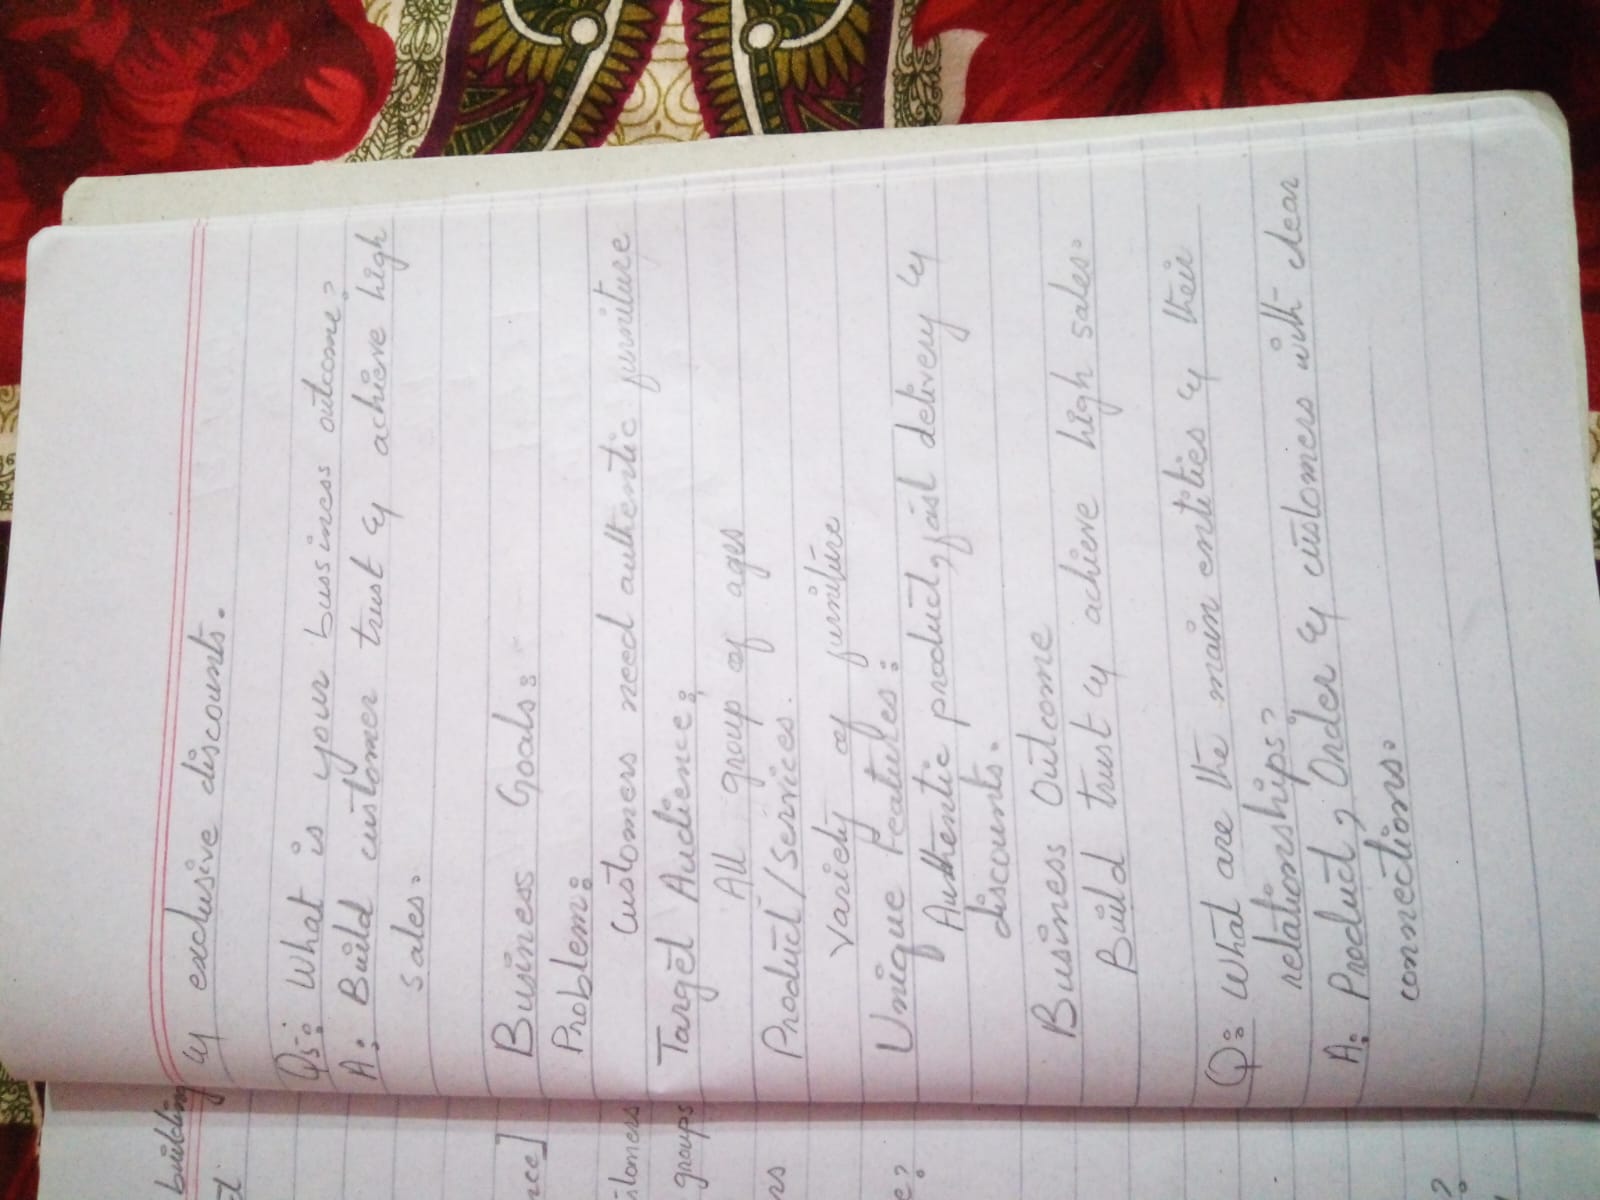 & exclusive discounts.
Q5: What is your bussiness outcome?
A: Build customer trust & achieve high
sales.
Business Goals:
Problem:
Customers need authentic furniture
Target Audience:
All group of ages
Product/Services.
Variety of furniture
Unique Features:
Authentic product, fast delivery &
discounts.
Business Outcome
Build trust & achieve high sales.
Q: What are the main entities & their
relationships?
A: Product, Order & customers with clear
connections.
building
groups